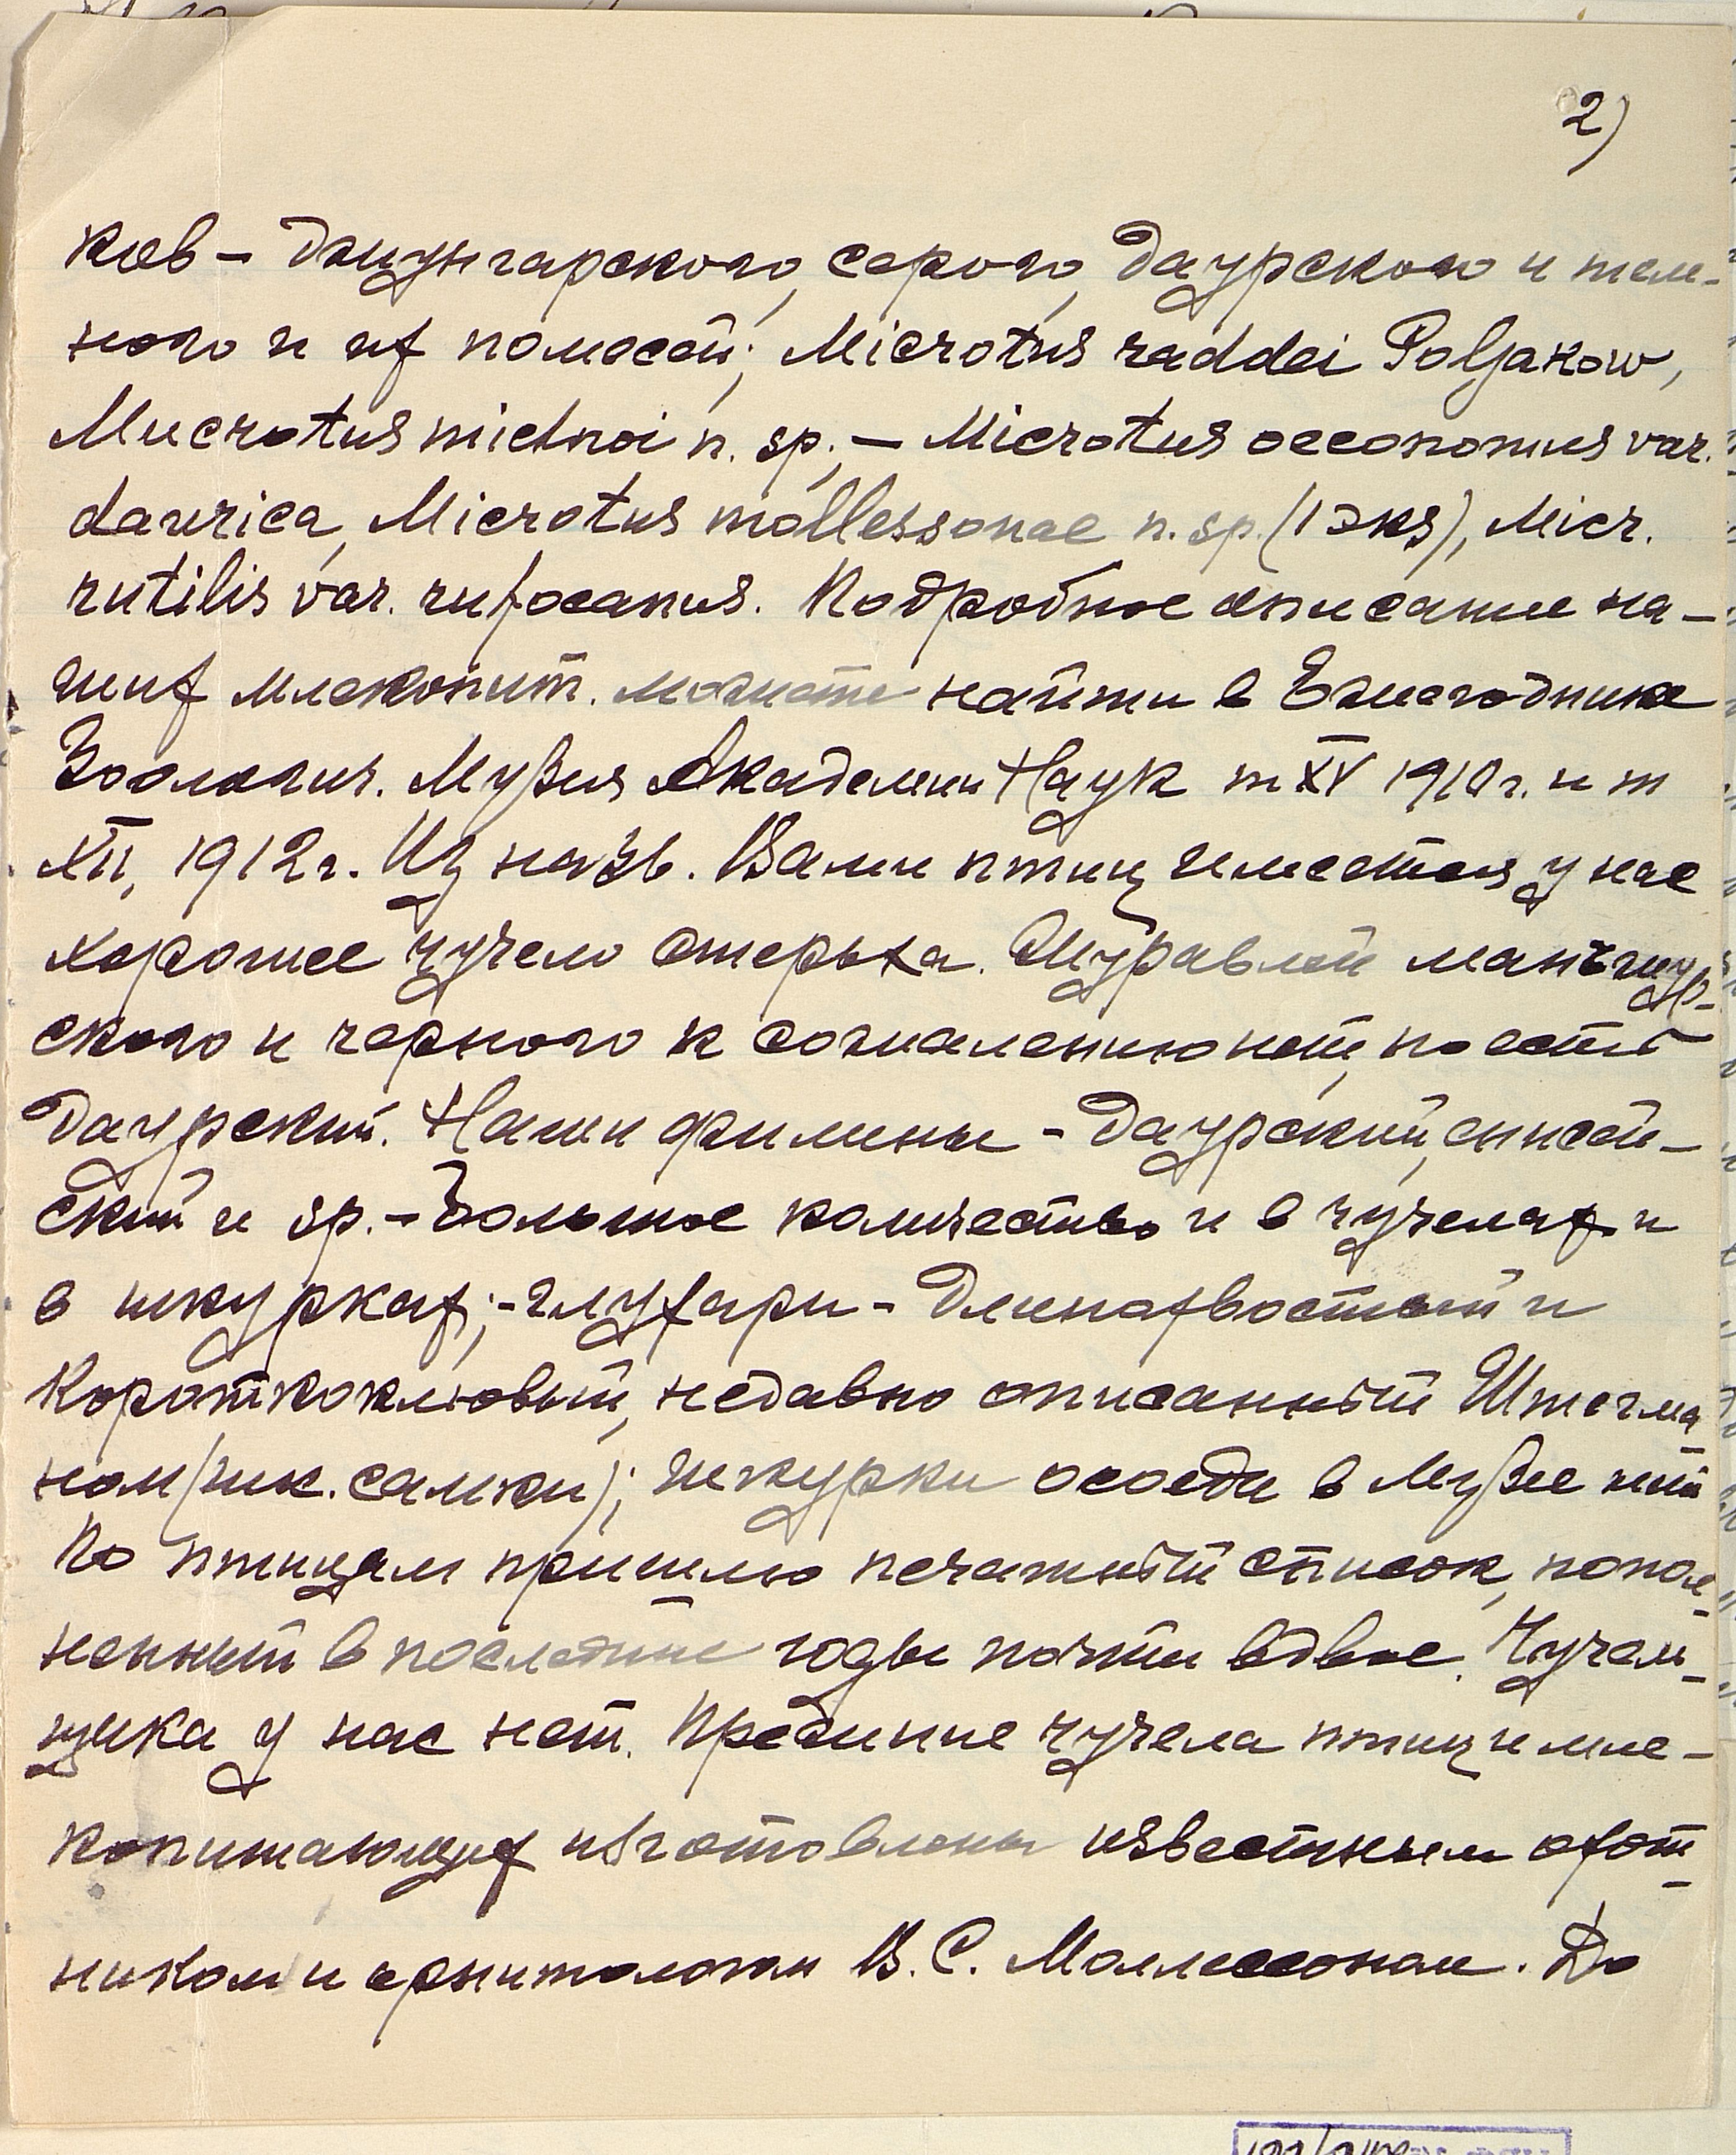 2)
ков – джунгарского, серого, даурского и тем-
ного и их помесей; Microtus raddei Poljakow,
Mucrotus michnoi n. sp. – Microtus oeconomus var.
daurica, Microtus mollessonae n. sp. (1 экз), Micr.
rutilis var. rufocanus. Подробное описание на-
ших млекопит. можете найти в Ежегоднике
Зоологич. Музея Академии Наук т XV 1910 г. и т
XVII, 1912 г. Из назв. Вами птиц имеется у нас
хорошее чучело стерха. Журавлей маньчжур-
ского и черного к сожалению нет, но есть
даурский. Наши филины – даурский, енисей-
ский и sp. – большое количество и в чучелах и
в шкурках; – глухари – длинохвостый и
короткоклювый, недавно описанный Штегма
ном (шк. самки); шкурки осоеда в Музее нет
По птицам пришлю печатный список, попол-
ненный в последние годы почти вдвое. Чучель-
щика у нас нет. Прежние чучела птиц и мле-
копитающих изготовлены известным охот-
ником и орнитологом В. С. Моллессоном. До